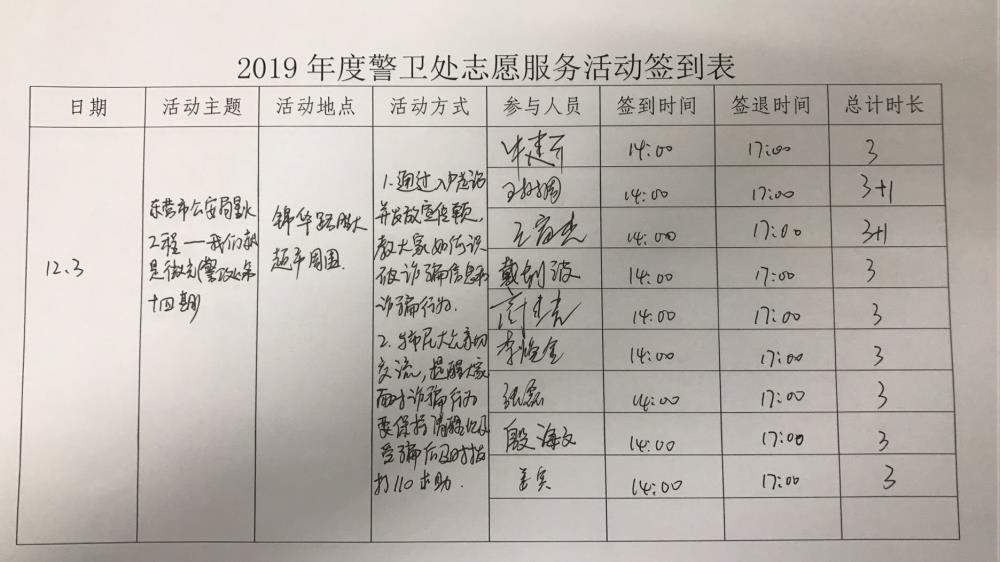 2019 年度警卫处志愿服务活动签到表
日期 活动主题 活动地点 活动方式 参与人员 签到时间 签退时间 总计时长
12.3
东营市公安局星火
工程——我们都
是微光(警政第
十四期)
锦华路胜大
超市周围.
1.通过入户走访
并发放宣传页,
教大家如何识
破诈骗信息和
诈骗行为.
2.与市民大众亲切
交流,提醒大家
面对诈骗行为
要保持清醒以及
受骗后及时拨
打110求助.
14:00 17:00 3
14:00 17:00 3+1
14:00 17:00 3+1
14:00 17:00 3
14:00 17:00 3
14:00 17:00 3
张磊 14:00 17:00 3
殷海文 14:00 17:00 3
姜宾 14:00 17:00 3